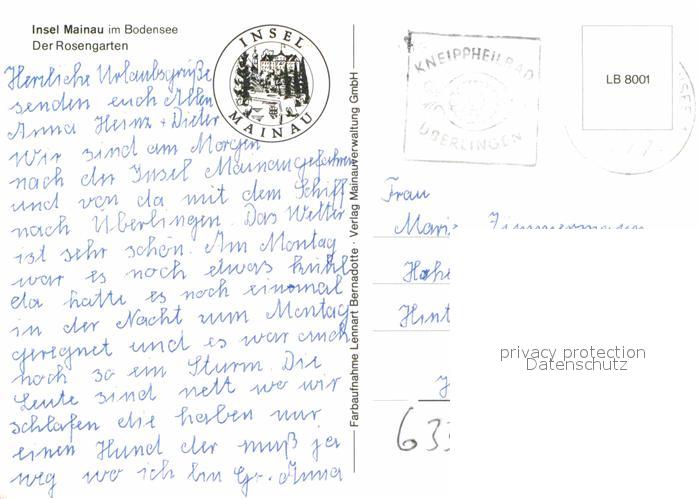 Insel Mainau im Bodensee
Der Rosengarten
INSEL
MAINAU
Herzliche Urlaubsgrüße
senden euch Allen
Anna Heinz + Dieter
Wir sind am Morgen
nach der Insel Mainau gefahren
und von da mit dem Schiff
nach Überlingen. Das Wetter
ist sehr schön. Am Montag
war es noch etwas kühl
da hatte es noch einmal
in der Nacht zum Montag
geregnet und es war auch
noch so ein Sturm. Die
Leute sind nett wo wir
schlafen die haben nur
einen Hund der muß ja
weg wo ich bin Gr. Anna
Farbaufnahme Lennart Bernadotte · Verlag Mainauverwaltung GmbH
KNEIPPHEILBAD
ÜBERLINGEN
LB 8001
Frau
privacy protection
Datenschutz